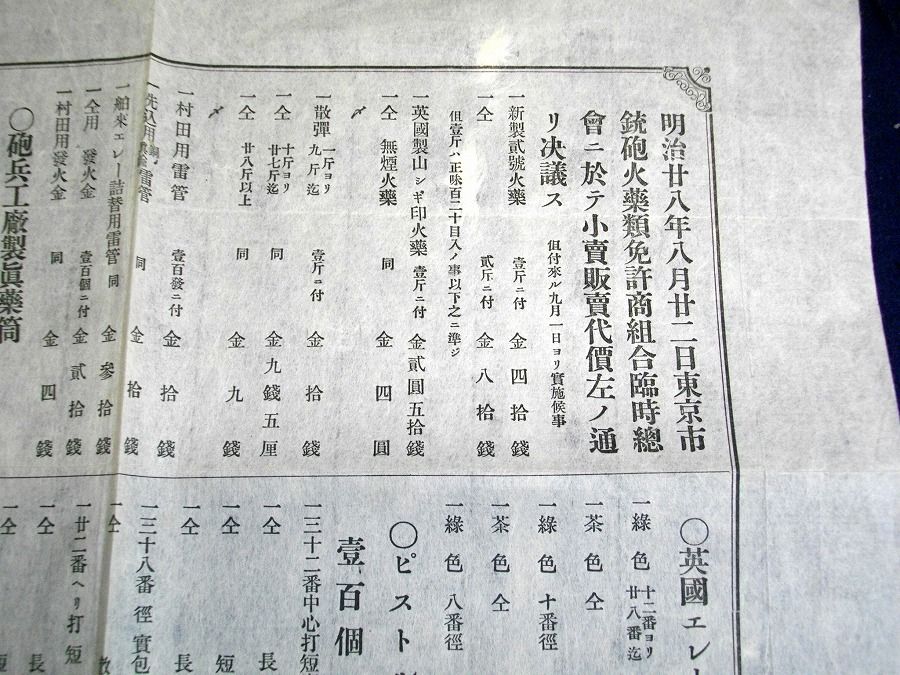 明治廿八年八月廿二日東京市
銃砲火藥類免許商組合臨時總
會ニ於テ小賣販賣代價左ノ通
リ决議ス 但付來ル九月一日ヨリ實施候事
一新製貳號火藥 壹斤ニ付 金四拾錢
一仝 貳斤ニ付 金八拾錢
但壹斤ハ正味百二十目入ノ事以下之ニ準ジ
一英國製山シギ印火藥 壹斤ニ付 金貳圓五拾錢
一仝 無煙火藥 同 金四圓
〆
一散彈 一斤ヨリ九斤迄 壹斤ニ付 金拾錢
一仝 十斤ヨリ廿七斤迄 同 金九錢五厘
一仝 廿八斤以上 同 金九錢
〆
一村田用雷管 壹百發ニ付 金拾錢
雷管 同 金拾錢
一舶來エレー詰替用雷管 同 金參拾錢
一仝用 發火金 壹百個ニ付 金貳拾錢
一村田用發火金 同 金四錢
〇砲兵工廠製眞藥筒
〇英國エレー
一綠色 十二番ヨリ廿八番迄
一茶色 仝
一綠色 十番徑
一茶色 仝
一綠色 八番徑
〇ピスト
壹百個
一三十二番中心打短
一仝 長
一仝 短
一仝 長
一三十八番徑實包
一仝
一廿二番ヘリ打短
一仝 長
一仝 短